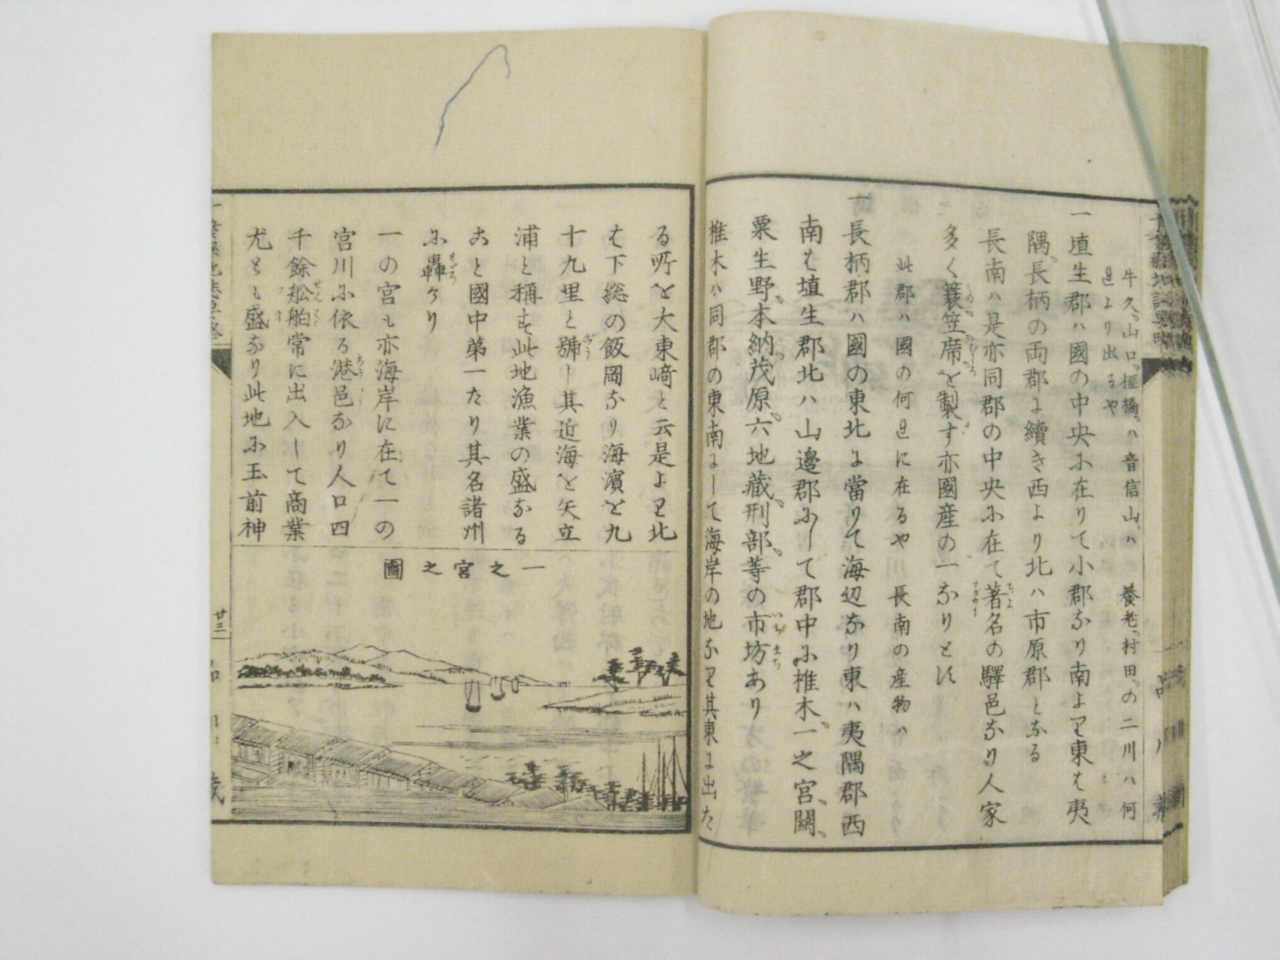 牛久、山口、柜橋、ハ音信山、ハ養老、村田、の二川ハ何
れより出るや
一埴生郡ハ國の中央に在りて小郡なり南より東は夷
隅、長柄の両郡に續き西より北ハ市原郡となる
長南ハ是亦同郡の中央に在て著名の驛邑なり人家
多く簑笠席を製す亦國産の一なりとす
此郡ハ國の何れに在るや川長南の産物ハ
一長柄郡ハ國の東北に當りて海辺なり東ハ夷隅郡西
南は埴生郡北ハ山邉郡にして郡中に椎木、一之宮、關、
粟生野、本納、茂原、六地藏、刑部、等の市坊あり
椎木ハ同郡の東南にして海岸の地なり其東に出た
る所を大東﨑と云是より北
は下総の飯岡なり海濱を九
十九里と號し其近海を矢立
浦と稱す此地漁業の盛なる
こと國中第一たり其名諸州
に轟けり
一の宮も亦海岸に在て一の
宮川に依る港邑なり人口四
千餘舩舶常に出入して商業
尤とも盛なり此地に玉前神
一之宮之圖
廿三